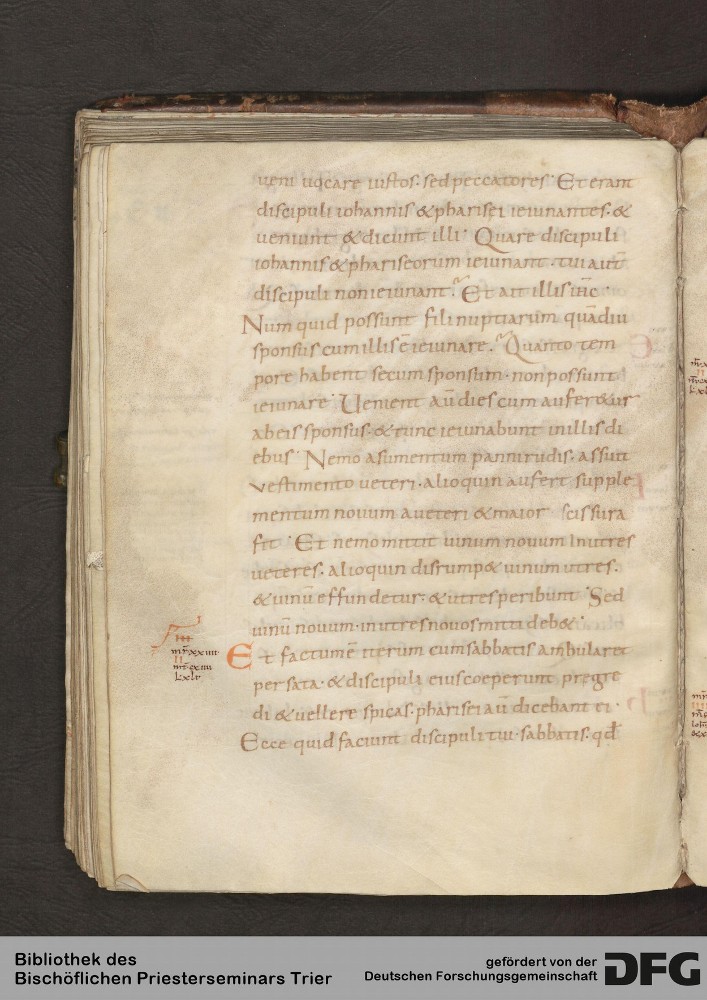 ueni uocare iustos. sed peccatores. Et erant
discipuli iohannis & pharisei ieiunantes. &
ueniunt & dicunt illi. Quare discipuli
iohannis & phariseorum ieiunant. tui aut̄
discipuli non ieiunant. Et ait illis ih̄c.
Num quid possunt fili nuptiarum quādiu
sponsus cum illis ē ieiunare. Quanto tem
pore habent secum sponsum. non possunt
ieiunare. Uenient aū dies cum aufer&ur
ab eis sponsus. & tunc ieiunabunt in illis di
ebus. Nemo asumentum panni rudis. assuit
vestimento ueteri. alioquin aufert supple
mentum nouum a ueteri & maior scissura
fit. Et nemo mittit uinum nouum in utres
ueteres. alioquin disrump& uinum utres.
& uinū effundetur. & utres peribunt. Sed
uinū nouum. in utres nouos mitti deb&.
mr̄ xxiiii
II
mt̄ cxiiii
l xli
Et factum ē iterum cum sabbatis ambular&
per sata. & discipuli eius coeperunt pregre
di & uellere spicas. pharisei aū dicebant ei.
Ecce quid faciunt discipuli tui. sabbatis. qd̄
Bibliothek des
Bischöflichen Priesterseminars Trier
gefördert von der
Deutschen Forschungsgemeinschaft
DFG